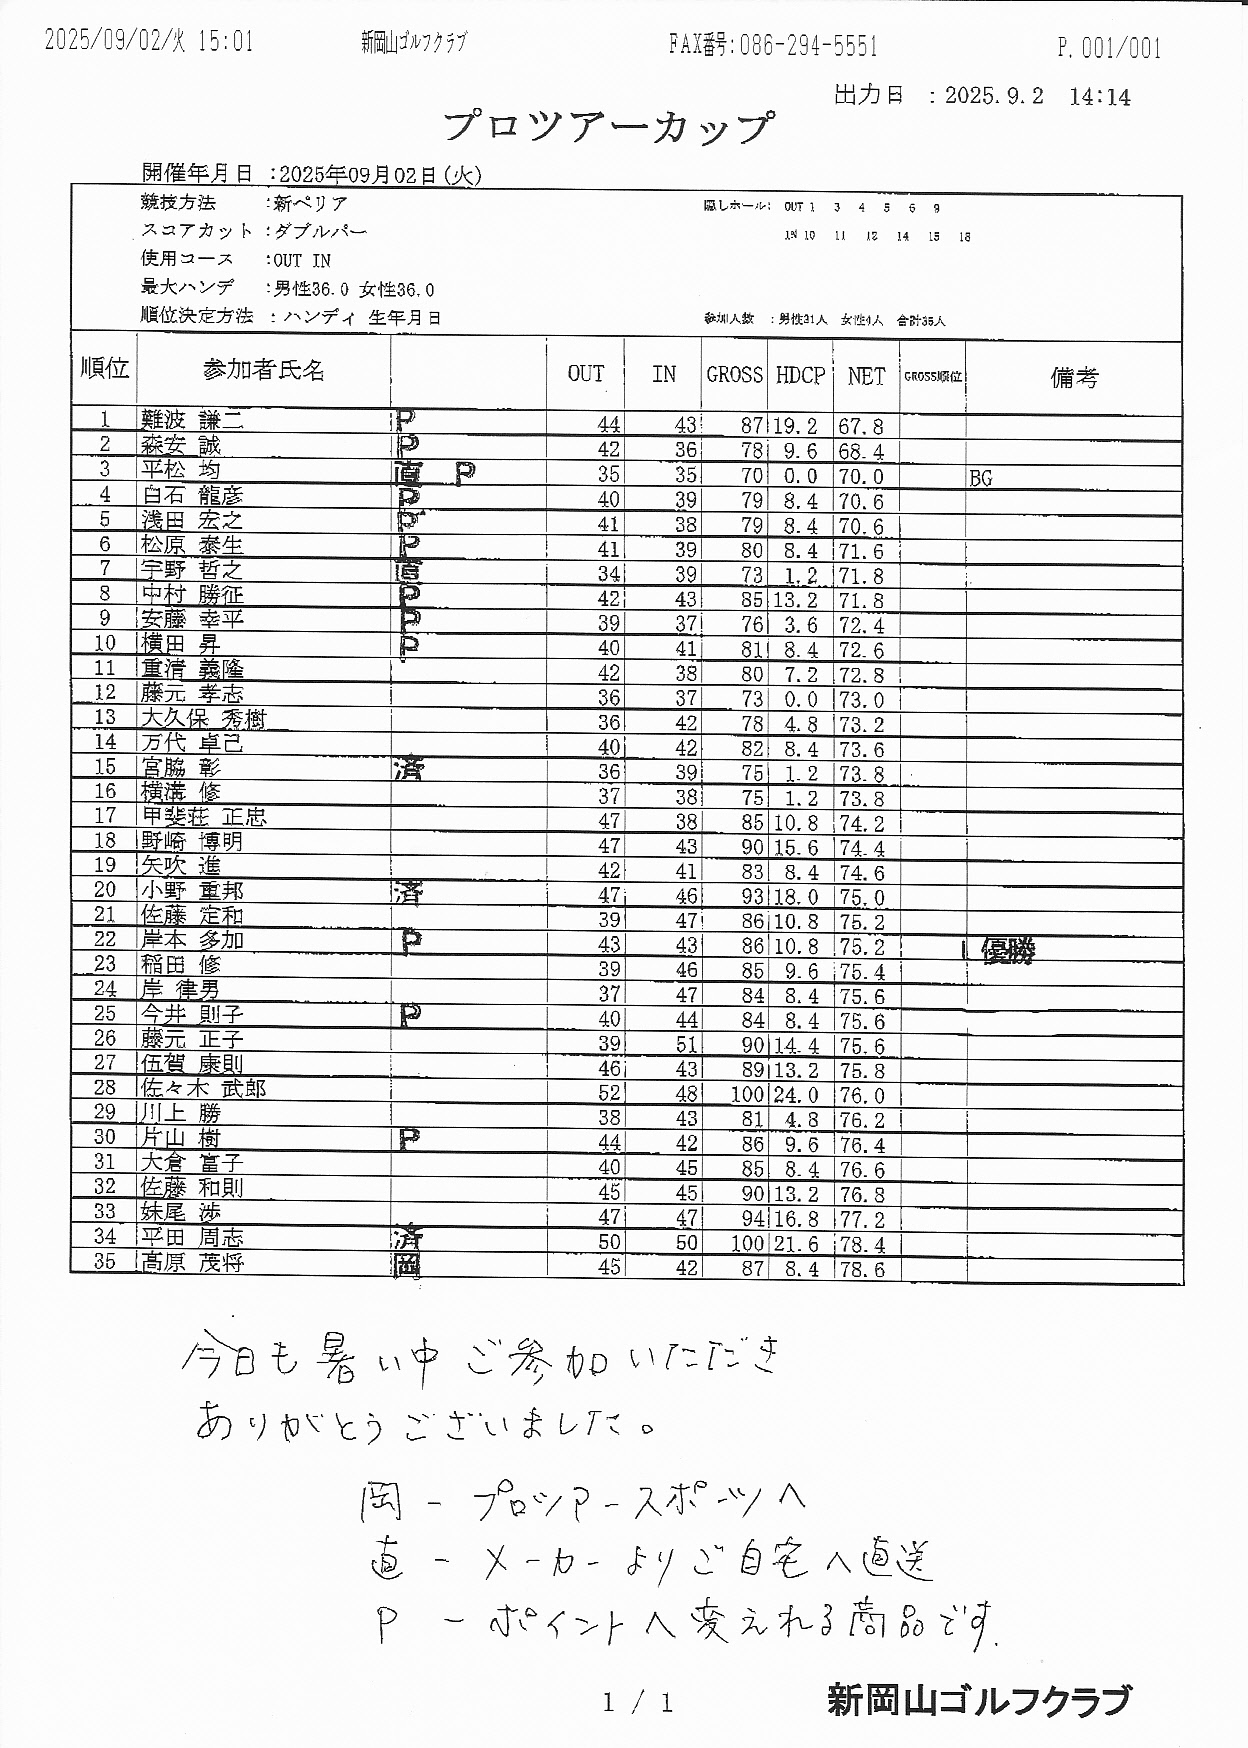 2025/09/02/火 15:01 新岡山ゴルフクラブ FAX番号:086-294-5551 P.001/001
出力日 : 2025.9.2 14:14
プロツアーカップ
開催年月日 :2025年09月02日(火)
競技方法 :新ペリア 隠しホール: OUT 1 3 4 5 6 9
スコアカット :ダブルパー IN 10 11 12 14 15 18
使用コース :OUT IN
最大ハンデ :男性36.0 女性36.0
順位決定方法 : ハンディ 生年月日 参加人数 :男性31人 女性4人 合計35人
順位 参加者氏名 OUT IN GROSS HDCP NET GROSS順位 備考
1 難波 謙二 P 44 43 87 19.2 67.8
2 森安 誠 P 42 36 78 9.6 68.4
3 平松 均 直 P 35 35 70 0.0 70.0 BG
4 白石 龍彦 P 40 39 79 8.4 70.6
5 浅田 宏之 P 41 38 79 8.4 70.6
6 松原 泰生 P 41 39 80 8.4 71.6
7 宇野 哲之 直 34 39 73 1.2 71.8
8 中村 勝征 P 42 43 85 13.2 71.8
9 安藤 幸平 P 39 37 76 3.6 72.4
10 横田 昇 P 40 41 81 8.4 72.6
11 重清 義隆 42 38 80 7.2 72.8
12 藤元 孝志 36 37 73 0.0 73.0
13 大久保 秀樹 36 42 78 4.8 73.2
14 万代 卓己 40 42 82 8.4 73.6
15 宮脇 彰 済 36 39 75 1.2 73.8
16 横溝 修 37 38 75 1.2 73.8
17 甲斐荘 正忠 47 38 85 10.8 74.2
18 野崎 博明 47 43 90 15.6 74.4
19 矢吹 進 42 41 83 8.4 74.6
20 小野 重邦 済 47 46 93 18.0 75.0
21 佐藤 定和 39 47 86 10.8 75.2
22 岸本 多加 P 43 43 86 10.8 75.2 L 優勝
23 稲田 修 39 46 85 9.6 75.4
24 岸 律男 37 47 84 8.4 75.6
25 今井 則子 P 40 44 84 8.4 75.6
26 藤元 正子 39 51 90 14.4 75.6
27 伍賀 康則 46 43 89 13.2 75.8
28 佐々木 武郎 52 48 100 24.0 76.0
29 川上 勝 38 43 81 4.8 76.2
30 片山 樹 P 44 42 86 9.6 76.4
31 大倉 富子 40 45 85 8.4 76.6
32 佐藤 和則 45 45 90 13.2 76.8
33 妹尾 渉 47 47 94 16.8 77.2
34 平田 周志 済 50 50 100 21.6 78.4
35 高原 茂将 岡 45 42 87 8.4 78.6
今日も暑い中ご参加いただき
ありがとうございました。
岡 - プロツアースポーツへ
直 - メーカーよりご自宅へ直送
P - ポイントへ変えれる商品です.
1 / 1 新岡山ゴルフクラブ